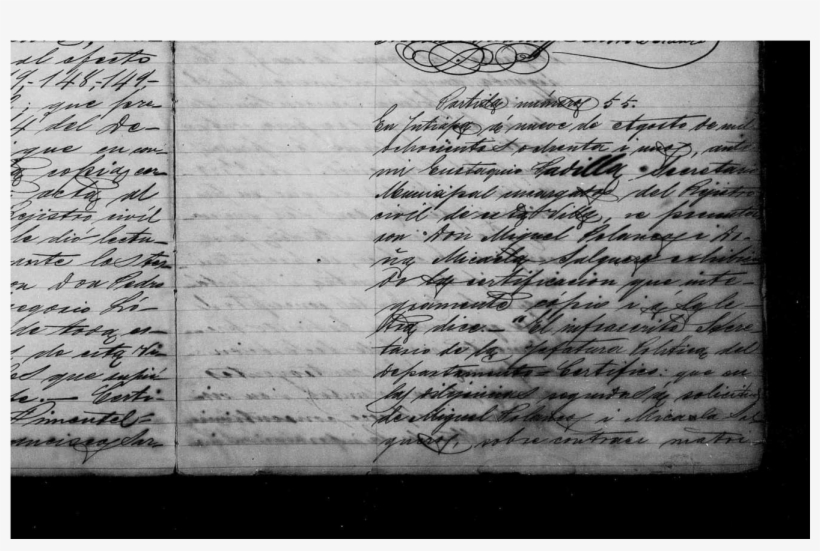 al efecto
9,-148,-149-
que pre-
4 del De-
que en un
copia en
acta al
Registro civil
le dió lectu-
ante los tes-
n Don Pedro
egorio
de toda es-
de esta Vi-
que supie
de - Certi-
Pimentel
Francisco
Partida número 55.
En Jutiapa á nueve de Agosto de mil
ochocientos ochenta i uno, ante
mi Eustaquio Padilla Secretario
Municipal encargado del Registro
civil de esta Villa, se presenta-
ron Don Miguel Polanco i Do-
ña Micaela Salguero exhibien-
do la certificacion que inte-
gramente copio i a la le-
tra dice.- "El infrascrito Secre-
tario de la Jefatura Politica del
Departamento - Certifica: que en
las diligencias seguidas á solicitud
de Miguel Polanco i Micaela Sal-
guero, sobre contraer matri-